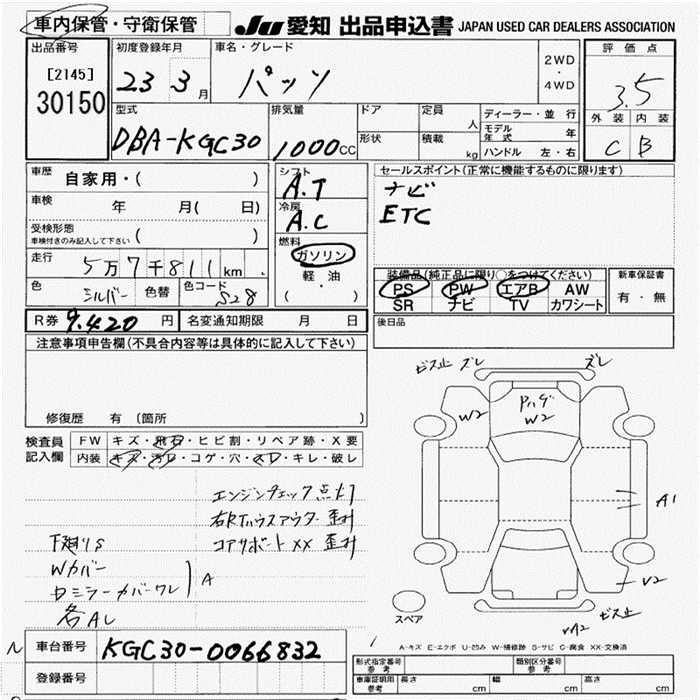 車内保管・守衛保管
JU 愛知 出品申込書 JAPAN USED CAR DEALERS ASSOCIATION
出品番号
[2145]
30150
初度登録年月
23 3月
車名・グレード
パッソ
2WD
・
4WD
評価点
3.5
外装 内装
C B
型式
DBA-KGC30
排気量
1000cc
ドア
形状
定員
人
積載
kg
ディーラー・並行
モデル年式 年
ハンドル 左・右
車歴
自家用・( )
車検
年 月(日)
受検形態
車検付きのみ記入して下さい ( )
走行
5万7千811km
色
シルバー
色替
色コード
S28
シフト
A.T
冷房
A.C
燃料
ガソリン
軽・油
( )
セールスポイント(正常に機能するものに限ります)
ナビ
ETC
装備品(純正品に限り○をつけてください)
PS PW エアB AW
SR ナビ TV カワシート
新車保証書
有・無
後日品
R券 9.420円
名変通知期限 月 日
注意事項申告欄(不具合内容等は具体的に記入して下さい)
修復歴 有 〔箇所 〕
検査員
記入欄
FW キズ・飛石・ヒビ割・リペア跡・X要
内装 キズ・汚レ・コゲ・穴・スレ・キレ・破レ
エンジンチェック点灯
右RTハウスアウター 歪み
コアサポートXX 歪み
下廻りS
Wカバー
Dミラーカバーワレ
A
各AL
ビス止 ズレ
ズレ
W2
Pハゲ
W2
A1
V2
ビス止
スペア
A-キズ E-エクボ U-凹み W-補修跡 S-サビ C-腐食 XX-交換済
車台番号 KGC30-0066832
登録番号
形式指定番号
参考
類別区分番号
参考
車庫証明用
参考
長さ cm
幅 cm
高さ cm